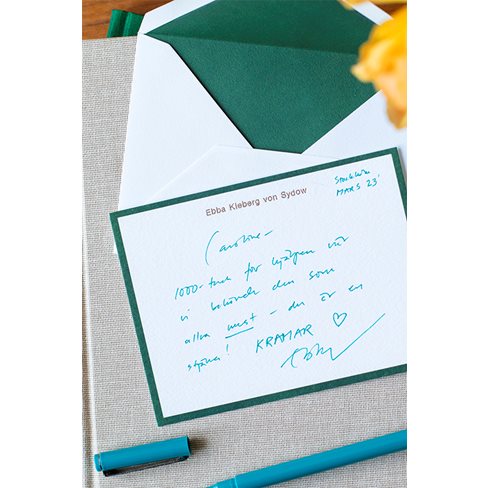 Ebba Kleberg von Sydow
Stockholm
MARS 23'
Caroline –
1000-tack för hjälpen när
vi behövde den som
allra mest – du är en
stjärna! KRAMAR ♡
Ebba